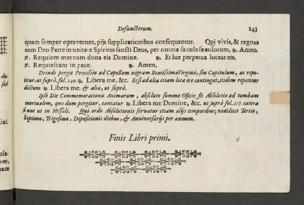 Defunctorum. 243
quam semper optaverunt, piis supplicationibus consequantur. Qui vivis, & regnas
cum Deo Patre in unitate Spiritus sancti Deus, per omnia sæcula sæculorum, ℟. Amen.
℣. Requiem æternam dona eis Domine. ℟. Et lux perpetua luceat eis.
℣. Requiescant in pace. ℟. Amen.
Deinde pergit Processio ad Capellam
ut suprà, fol. ℟. Libera me, &c.
dictum ℟. Libera me. & alia, ut suprà.
Die Commemorationis Animarum, absoluto summo Officio fit Absolutio ad tumbam
mortualem, quo dum pergitur, cantatur ℟. Libera me Domine, &c. ut suprà fol.
ut in Missali. ordo Absolutionis servatur etiam aliis temporibus, videlicet Tertio,
Septimo, Trigesimo, Depositionis diebus, & Anniversariis per annum.
Finis Libri primi.